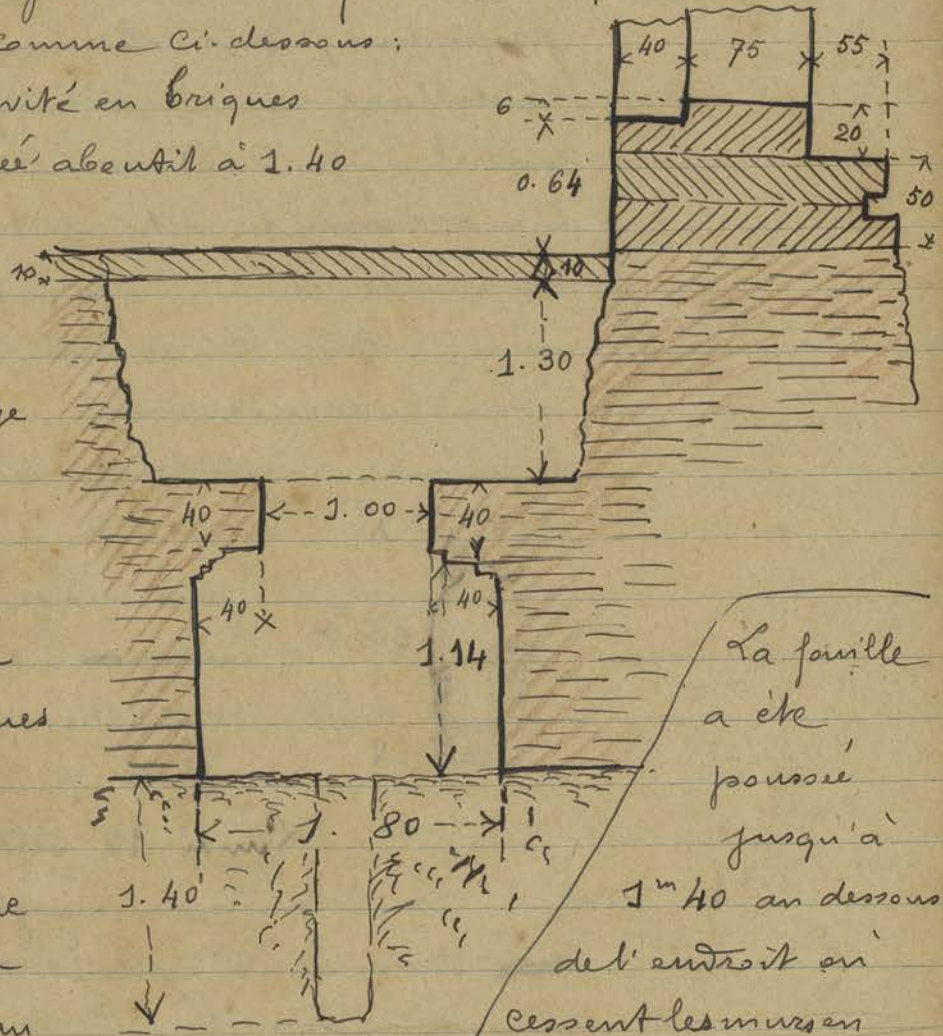 comme ci-dessous:
vité en briques
eé aboutit à 1.40
40 75 55
6
20
0.64
50
10
10
1.30
ge
40 1.00 40
40
40
1.14
ues
1.80
1.40
La fouille
a éte
poussée
jusqu'à
1m 40 au dessous
de l'endroit où
cessent les murs en